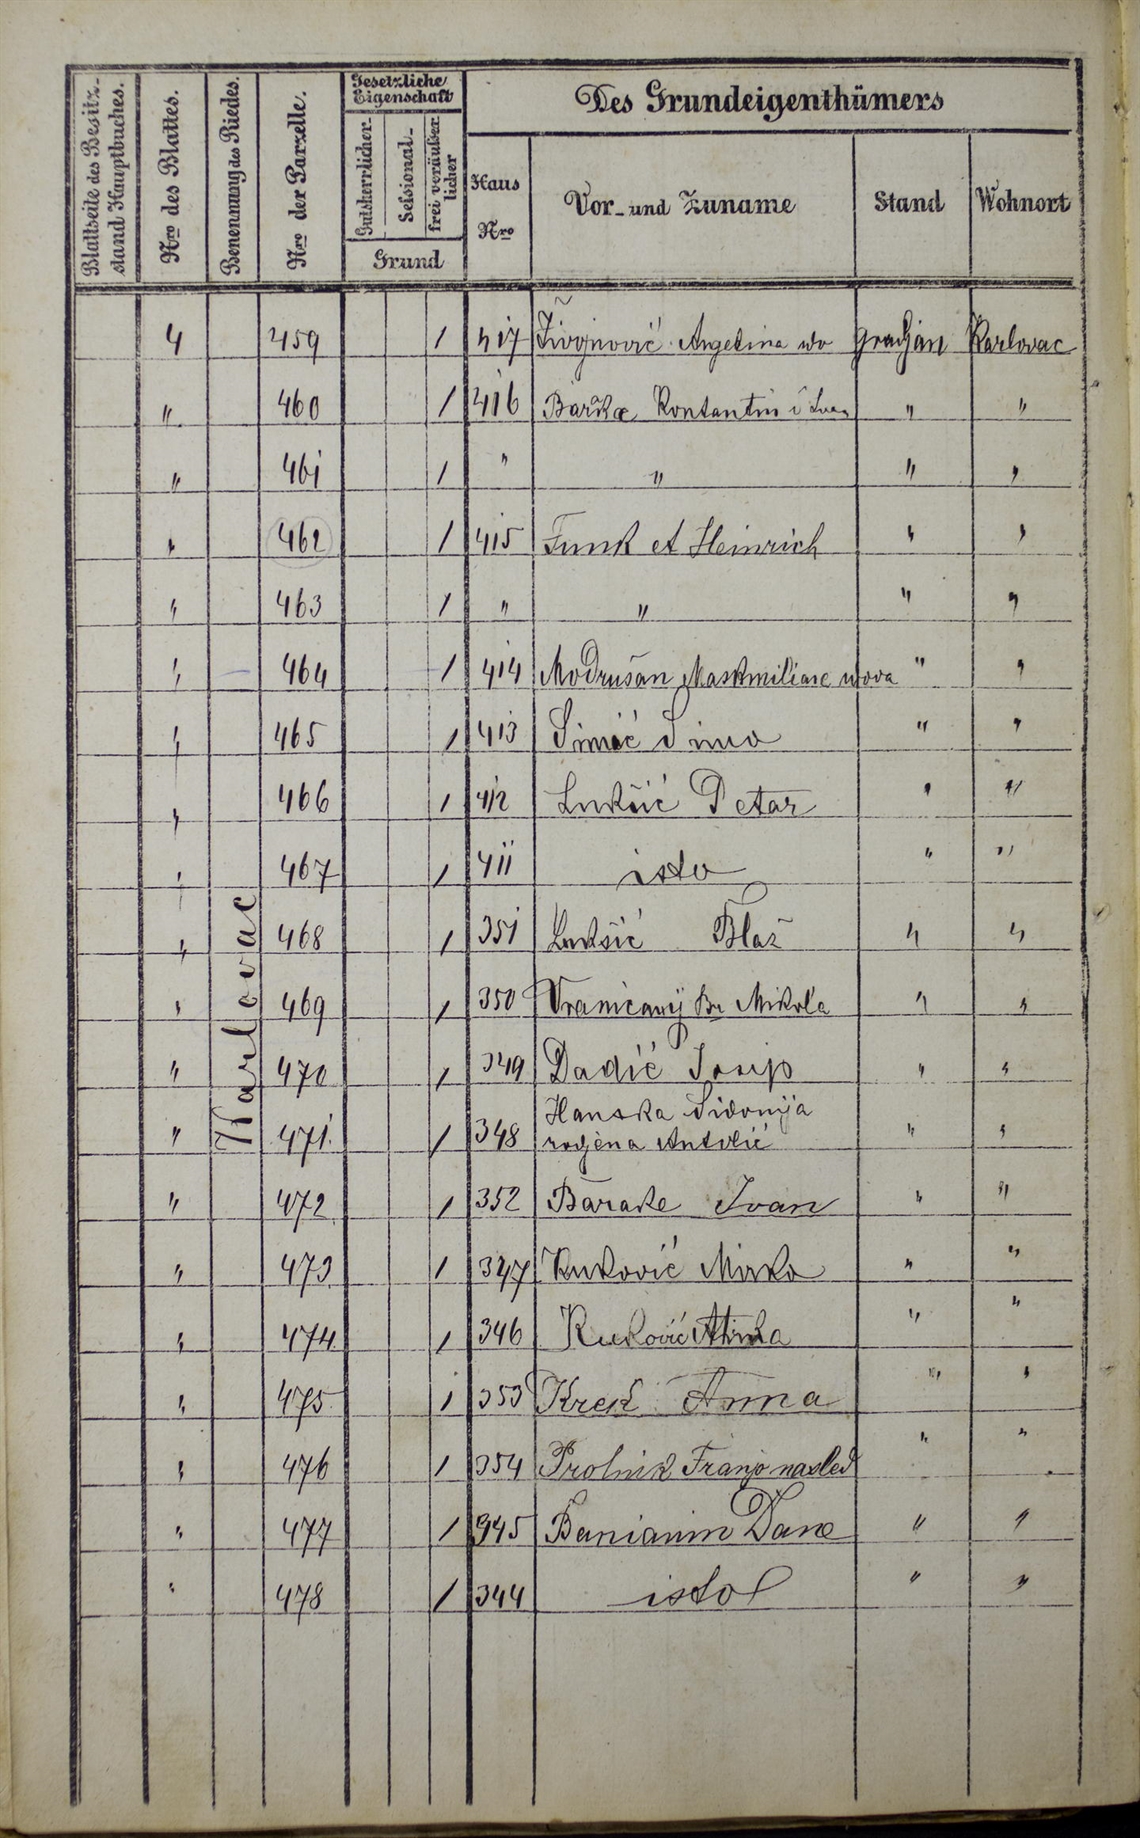 Blattseite des Besitz-
stand Hauptbuches.
Nro des Blattes.
Benennung des Riedes.
Nro der Parzelle.
Gesetzliche
Eigenschaft
Gutsherrlicher
Sessional-
frei veräußer
licher
Grund
Des Grundeigenthümers
Haus
Nro
Vor- und Zuname
Stand
Wohnort
Karlovac
4 459 1 417 Živojnović Angelina Karlovac
" 460 1 416 Konstantin i Ivan " "
" 461 1 " " " "
" 462 1 415 Funk et Heinrich " "
" 463 1 " " " "
" 464 1 414 Modrušan " "
" 465 1 413 Simić Simo " "
" 466 1 412 Lukšić Petar " "
" 467 1 411 isto " "
" 468 1 351 Lukšić Blaž " "
" 469 1 350 Vranicany Br Mikola " "
" 470 1 349 Dadić Josip " "
" 471 1 348 Hanska Sidonija
rodjena Antolić " "
" 472 1 352 Barake Ivan " "
" 473 1 347 Kuković Mirko " "
" 474 1 346 Kuković " "
" 475 1 353 Krek Anna " "
" 476 1 354 Franjo nasled " "
" 477 1 945 Banianin Dane " "
" 478 1 344 isto " "